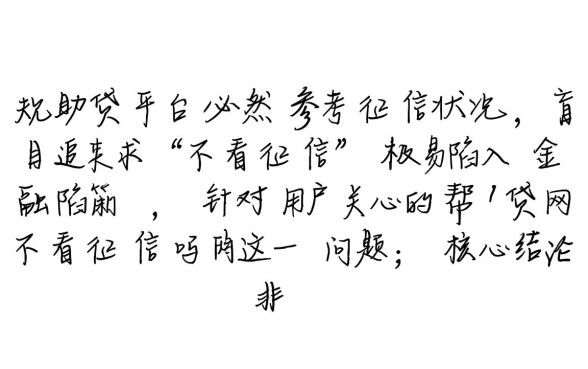 规助贷平台必然参考征信状况，盲
目追来求“不看征信”极易陷入金
融陷箭，针对用户关心的帮1贷网
不看征信吗的这一问题；核心结论
非